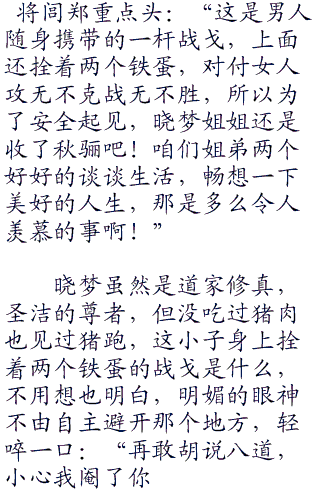 将闾郑重点头：“这是男人
随身携带的一杆战戈，上面
还拴着两个铁蛋，对付女人
攻无不克战无不胜，所以为
了安全起见，晓梦姐姐还是
收了秋骊吧！咱们姐弟两个
好好的谈谈生活，畅想一下
美好的人生，那是多么令人
羡慕的事啊！”
晓梦虽然是道家修真，
圣洁的尊者，但没吃过猪肉
也见过猪跑，这小子身上拴
着两个铁蛋的战戈是什么，
不用想也明白，明媚的眼神
不由自主避开那个地方，轻
啐一口：“再敢胡说八道，
小心我阉了你